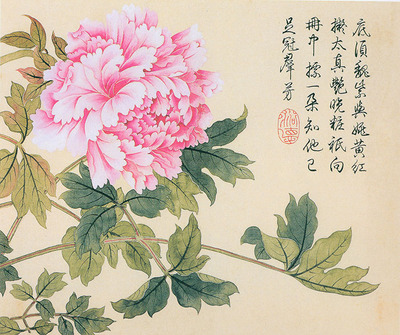 底須魏紫與姚黃紅
撚太真艷晚粧祇向
冊中標一朶知他已
足冠羣芳